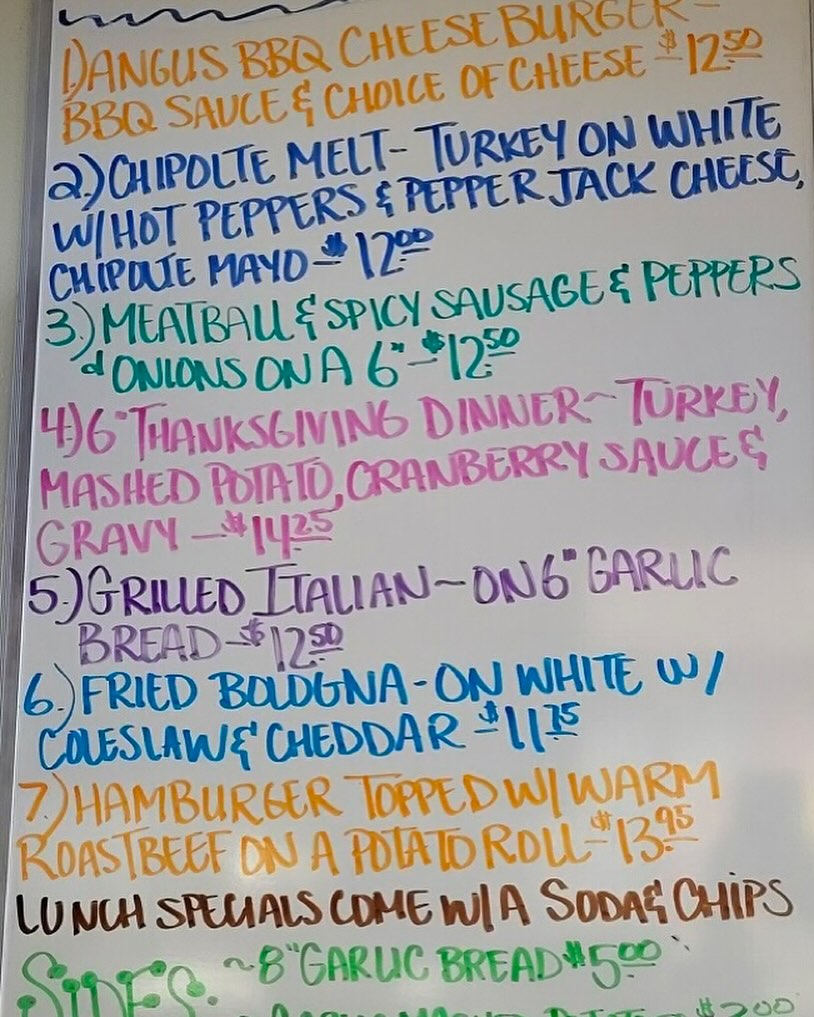 1) ANGUS BBQ CHEESEBURGER-
BBQ SAUCE & CHOICE OF CHEESE $12.50
2.) CHIPOLTE MELT- TURKEY ON WHITE
W/ HOT PEPPERS & PEPPER JACK CHEESE,
CHIPOLTE MAYO - $12.00
3.) MEATBALL & SPICY SAUSAGE & PEPPERS
& ONIONS ON A 6" - $12.50
4.) 6" THANKSGIVING DINNER ~ TURKEY,
MASHED POTATO, CRANBERRY SAUCE &
GRAVY - $14.25
5.) GRILLED ITALIAN ~ ON 6" GARLIC
BREAD - $12.50
6.) FRIED BOLOGNA - ON WHITE W/
COLESLAW & CHEDDAR $11.75
7.) HAMBURGER TOPPED W/ WARM
ROASTBEEF ON A POTATO ROLL - $13.95
LUNCH SPECIALS COME W/ A SODA & CHIPS
SIDES: ~8" GARLIC BREAD $5.00
$2.00